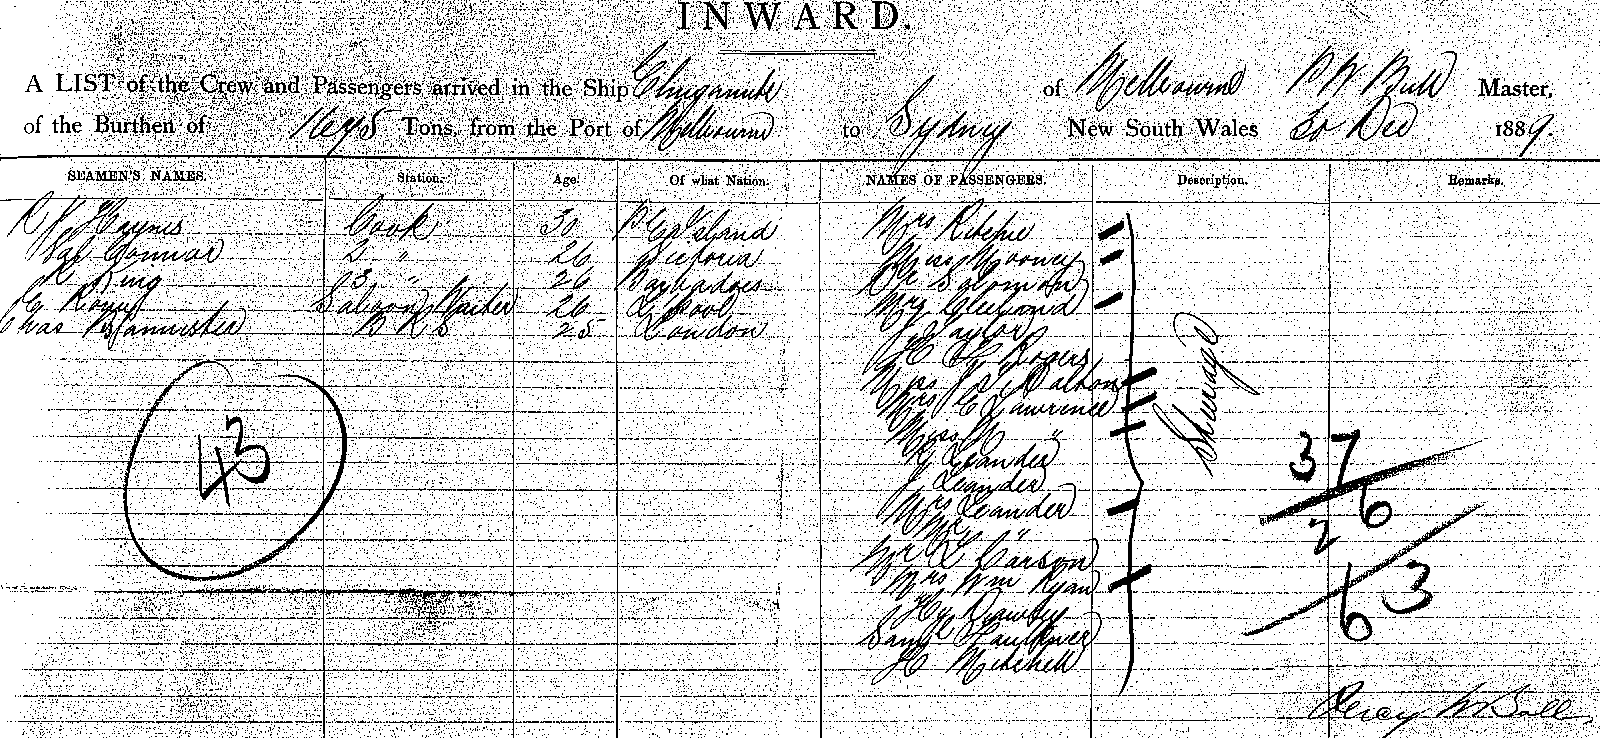 INWARD.
A LIST of the Crew and Passengers arrived in the Ship Elingamite of Melbourne P W Bull Master,
of the Burthen of 1675 Tons, from the Port of Melbourne to Sydney New South Wales 30 Dec 1889.
SEAMEN'S NAMES. Station. Age. Of what Nation. NAMES OF PASSENGERS. Description. Remarks.
Haynes Cook 30 P Ed Island Mrs Ritchie
Connor 2 " 26 Victoria Miss Mooney
King 3 " 26 Barbadoes Salomon
Saloon Waiter 26 L'Pool Cleland
Chas Bannister B R S 25 London Taylor
H Rogers
Mrs Dalton
Mrs E Lawrence
Miss "
Leander
J Leander
Mrs Leander
"
Mr Carson
Mrs Wm Ryan
Hy
Saml Faulkner
H Mitchell
Steerage
43
37
26
63
Percy W Bull